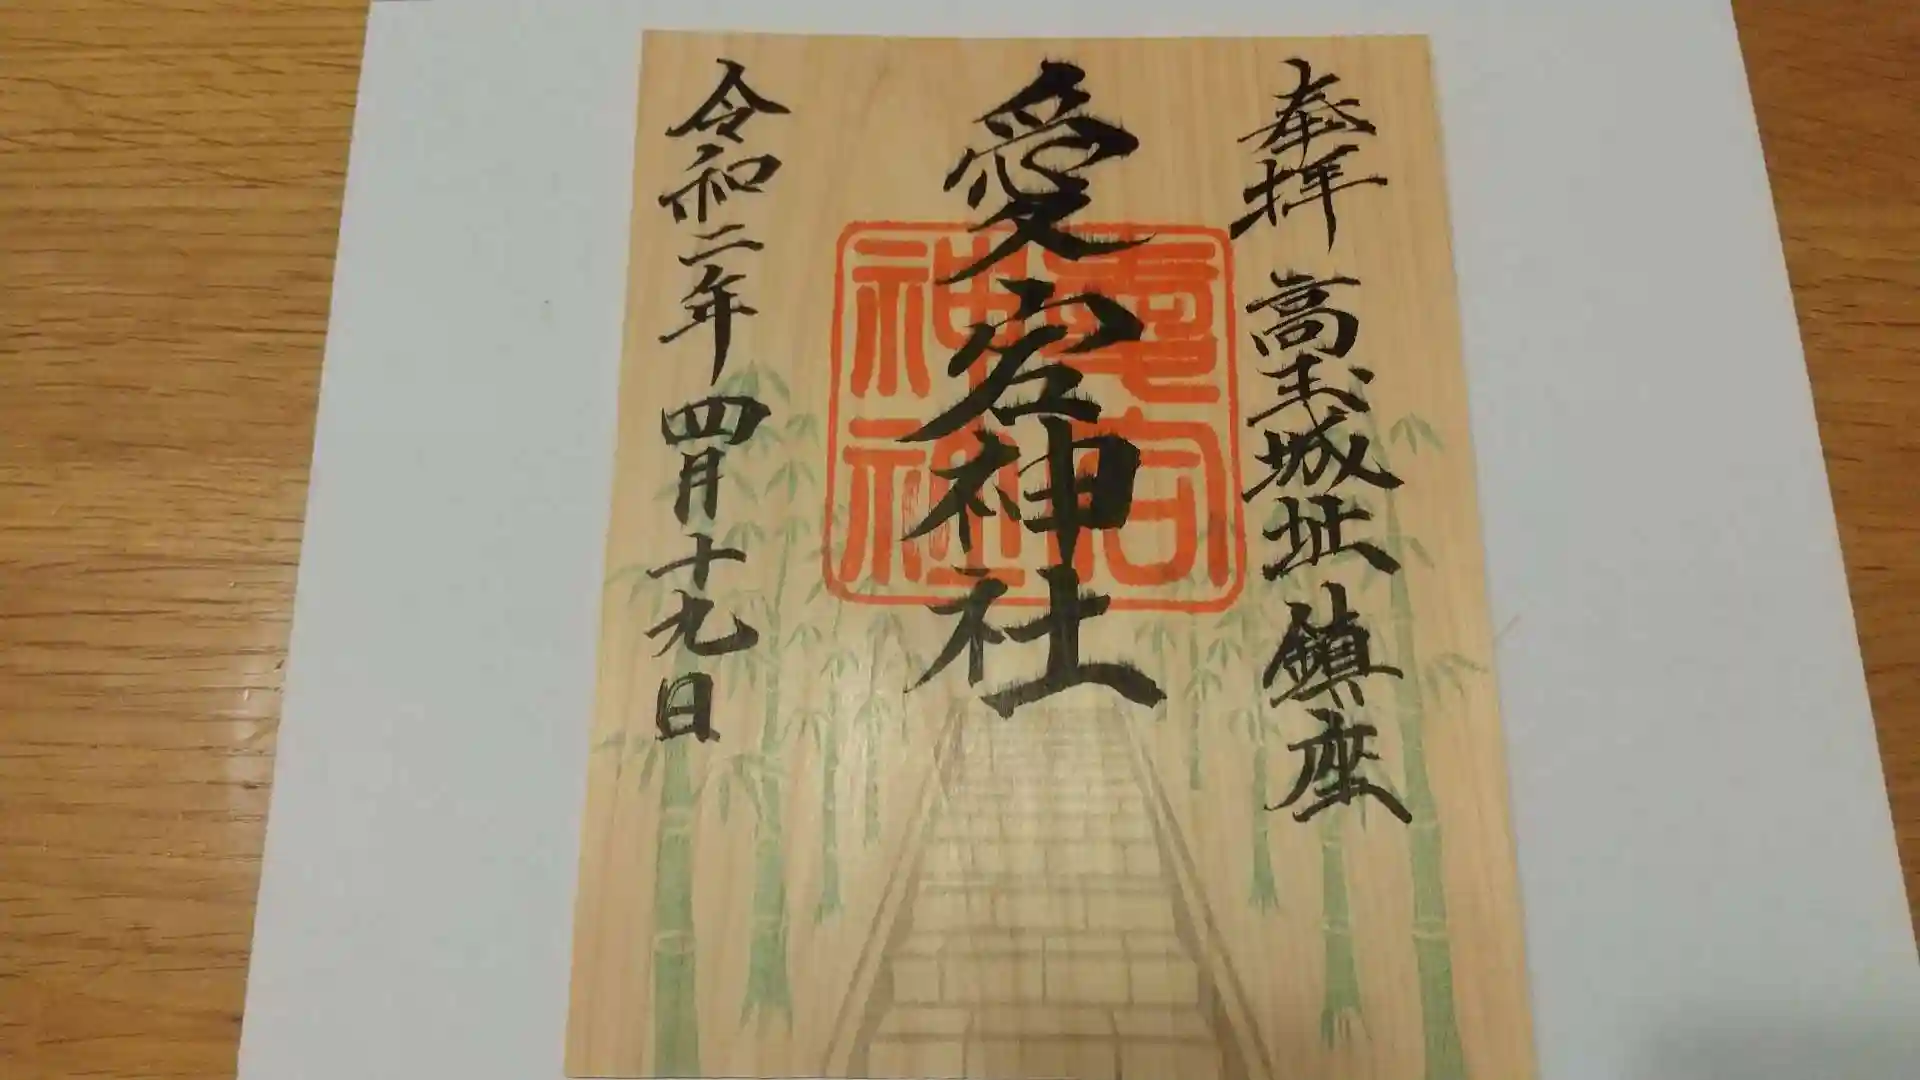 奉拝 高玉城址 鎮座
愛宕神社
愛宕神社
令和二年四月十九日